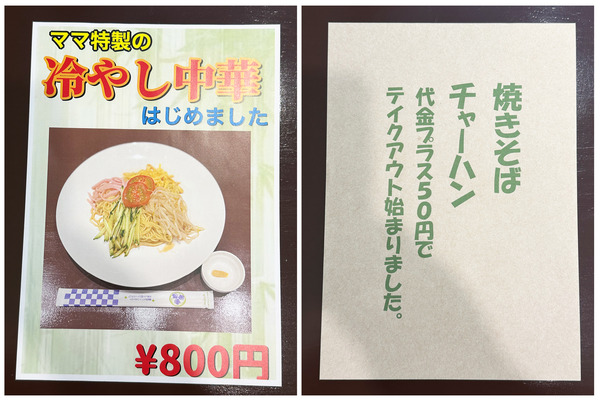 ママ特製の
冷やし中華
はじめました
¥800円
焼きそば
チャーハン
代金プラス50円で
テイクアウト始まりました。